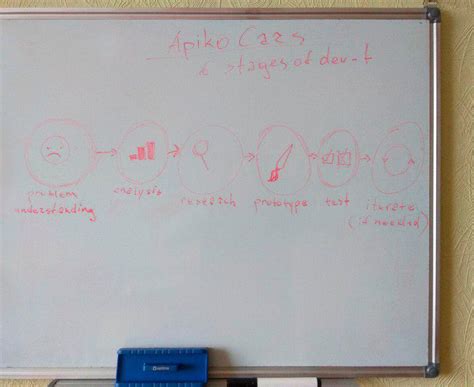 Apiko Cars
6 stages of dev-t
problem
understanding
analysis
research
prototype
test
iterate
(if needed)